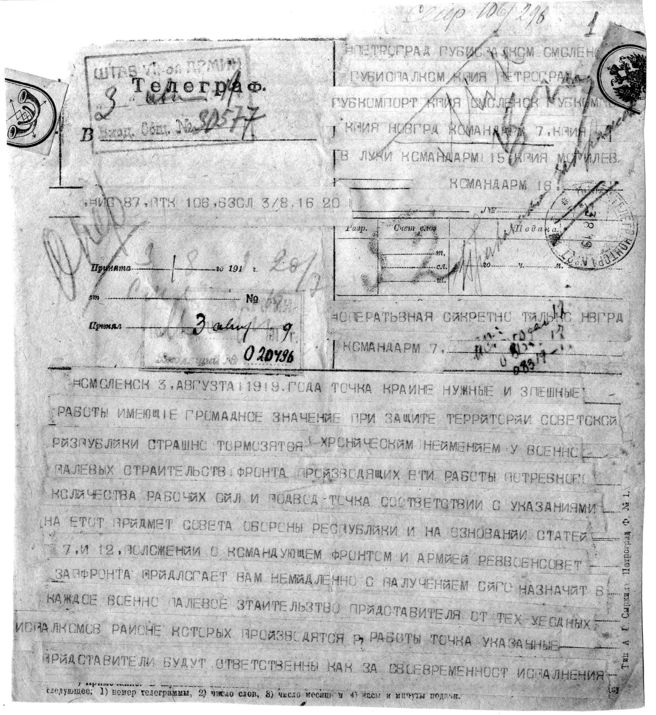 ШТАБ VII-ой АРМИИ
Телеграф.
3
В
Вход. Общ. № 30577
=ПЕТРОГРАД ГУБИСПАЛКОМ СМОЛЕНС
ГУБИСПАЛКОМ КПИЯ ПЕТРОГРАД
ГУБКОМПОРТ КПИЯ СМОЛЕНСК ГУБКОМПО
КПИЯ НОВГРД КОМАНДАРМ 7, КПИЯ
В ЛУКИ КОМАНДАРМ 15, КПИЯ МОГИЛЕВ
КОМАНДАРМ 16,
87, ПТК 106, 630Л 3/8, 16 20
№
Разр. Счет слов Подана
т. го ч. м.
сл.
ш.
Принята 3/8 го 191 г. 20/7
от №
Принял
3 авг 9
020496
=ОПЕРАТЬВНАЯ СИКРЕТНО ТИЛЬКС НВГРД
КОМАНДАРМ 7,
=НОСМОЛЕНСК 3, АВГУСТА 1919, ГОДА ТОЧКА КРАИНЕ НУЖНЫЕ И ЗПЕШНЫЕ
РАБОТЫ ИМЕЮЩIЕ ГРОМАДНОЕ ЗНАЧЕНИЕ ПРИ ЗАЩИТЕ ТЕРРИТОРIИ СОВЕТСКОЙ
РИЗПУБЛИКИ СТРАШНО ТОРМОЗЯТСЯ ХРОНИЧЕСКИМ НЕИМЕНИЕМ У ВОЕННО
ПАЛЕВЫХ СТРАИТЕЛЬСТВ ФРОНТА ПРОИЗВОДЯЩИХ ЕТИ РАБОТЫ ПОТРЕБНОГО
КОЛИЧЕСТВА РАБОЧИХ СИЛ И ПОДВОД ТОЧКА СООТВЕТСТВИИ С УКАЗАНИЯМИ
НА ЕТОТ ПРИДМЕТ СОВЕТА ОБОРОНЫ РЕСПУБЛИКИ И НА ОЗНОВАНИИ СТАТЕЙ
7, И 12, ПОЛОЖЕНИИ О КОМАНДУЮЩЕМ ФРОНТОМ И АРМИЕЙ РЕВВОЕНСОВЕТ
ЗАПФРОНТА ПРИДЛОГАЕТ ВАМ НЕМИДЛЕННО С ПАЛУЧЕНИЕМ СЙГО НАЗНАЧИТ В
КАЖДОЕ ВОЕННО ПАЛЕВОЕ ЗТАИТЕЛЬЗТВО ПРИДСТАВИТЕЛЯ ОТ ТЕХ УЕСДНЫХ
ИСПАЛКОМОВ РАЙОНЕ КОТОРЫХ ПРОИЗВОДЯТСЯ РАБОТЫ ТОЧКА УКАЗАННЫЕ
ПРИДСТАВИТЕЛИ БУДУТ ОТВЕТСТВЕННЫ КАК ЗА СВОЕВРЕМЕННОСТ ИСПАЛНЕНИЯ
следующее: 1) номер телеграммы, 2) число слов, 3) число месяца и 4) часы и минуты подачи.
Петроград Ф. № 1.